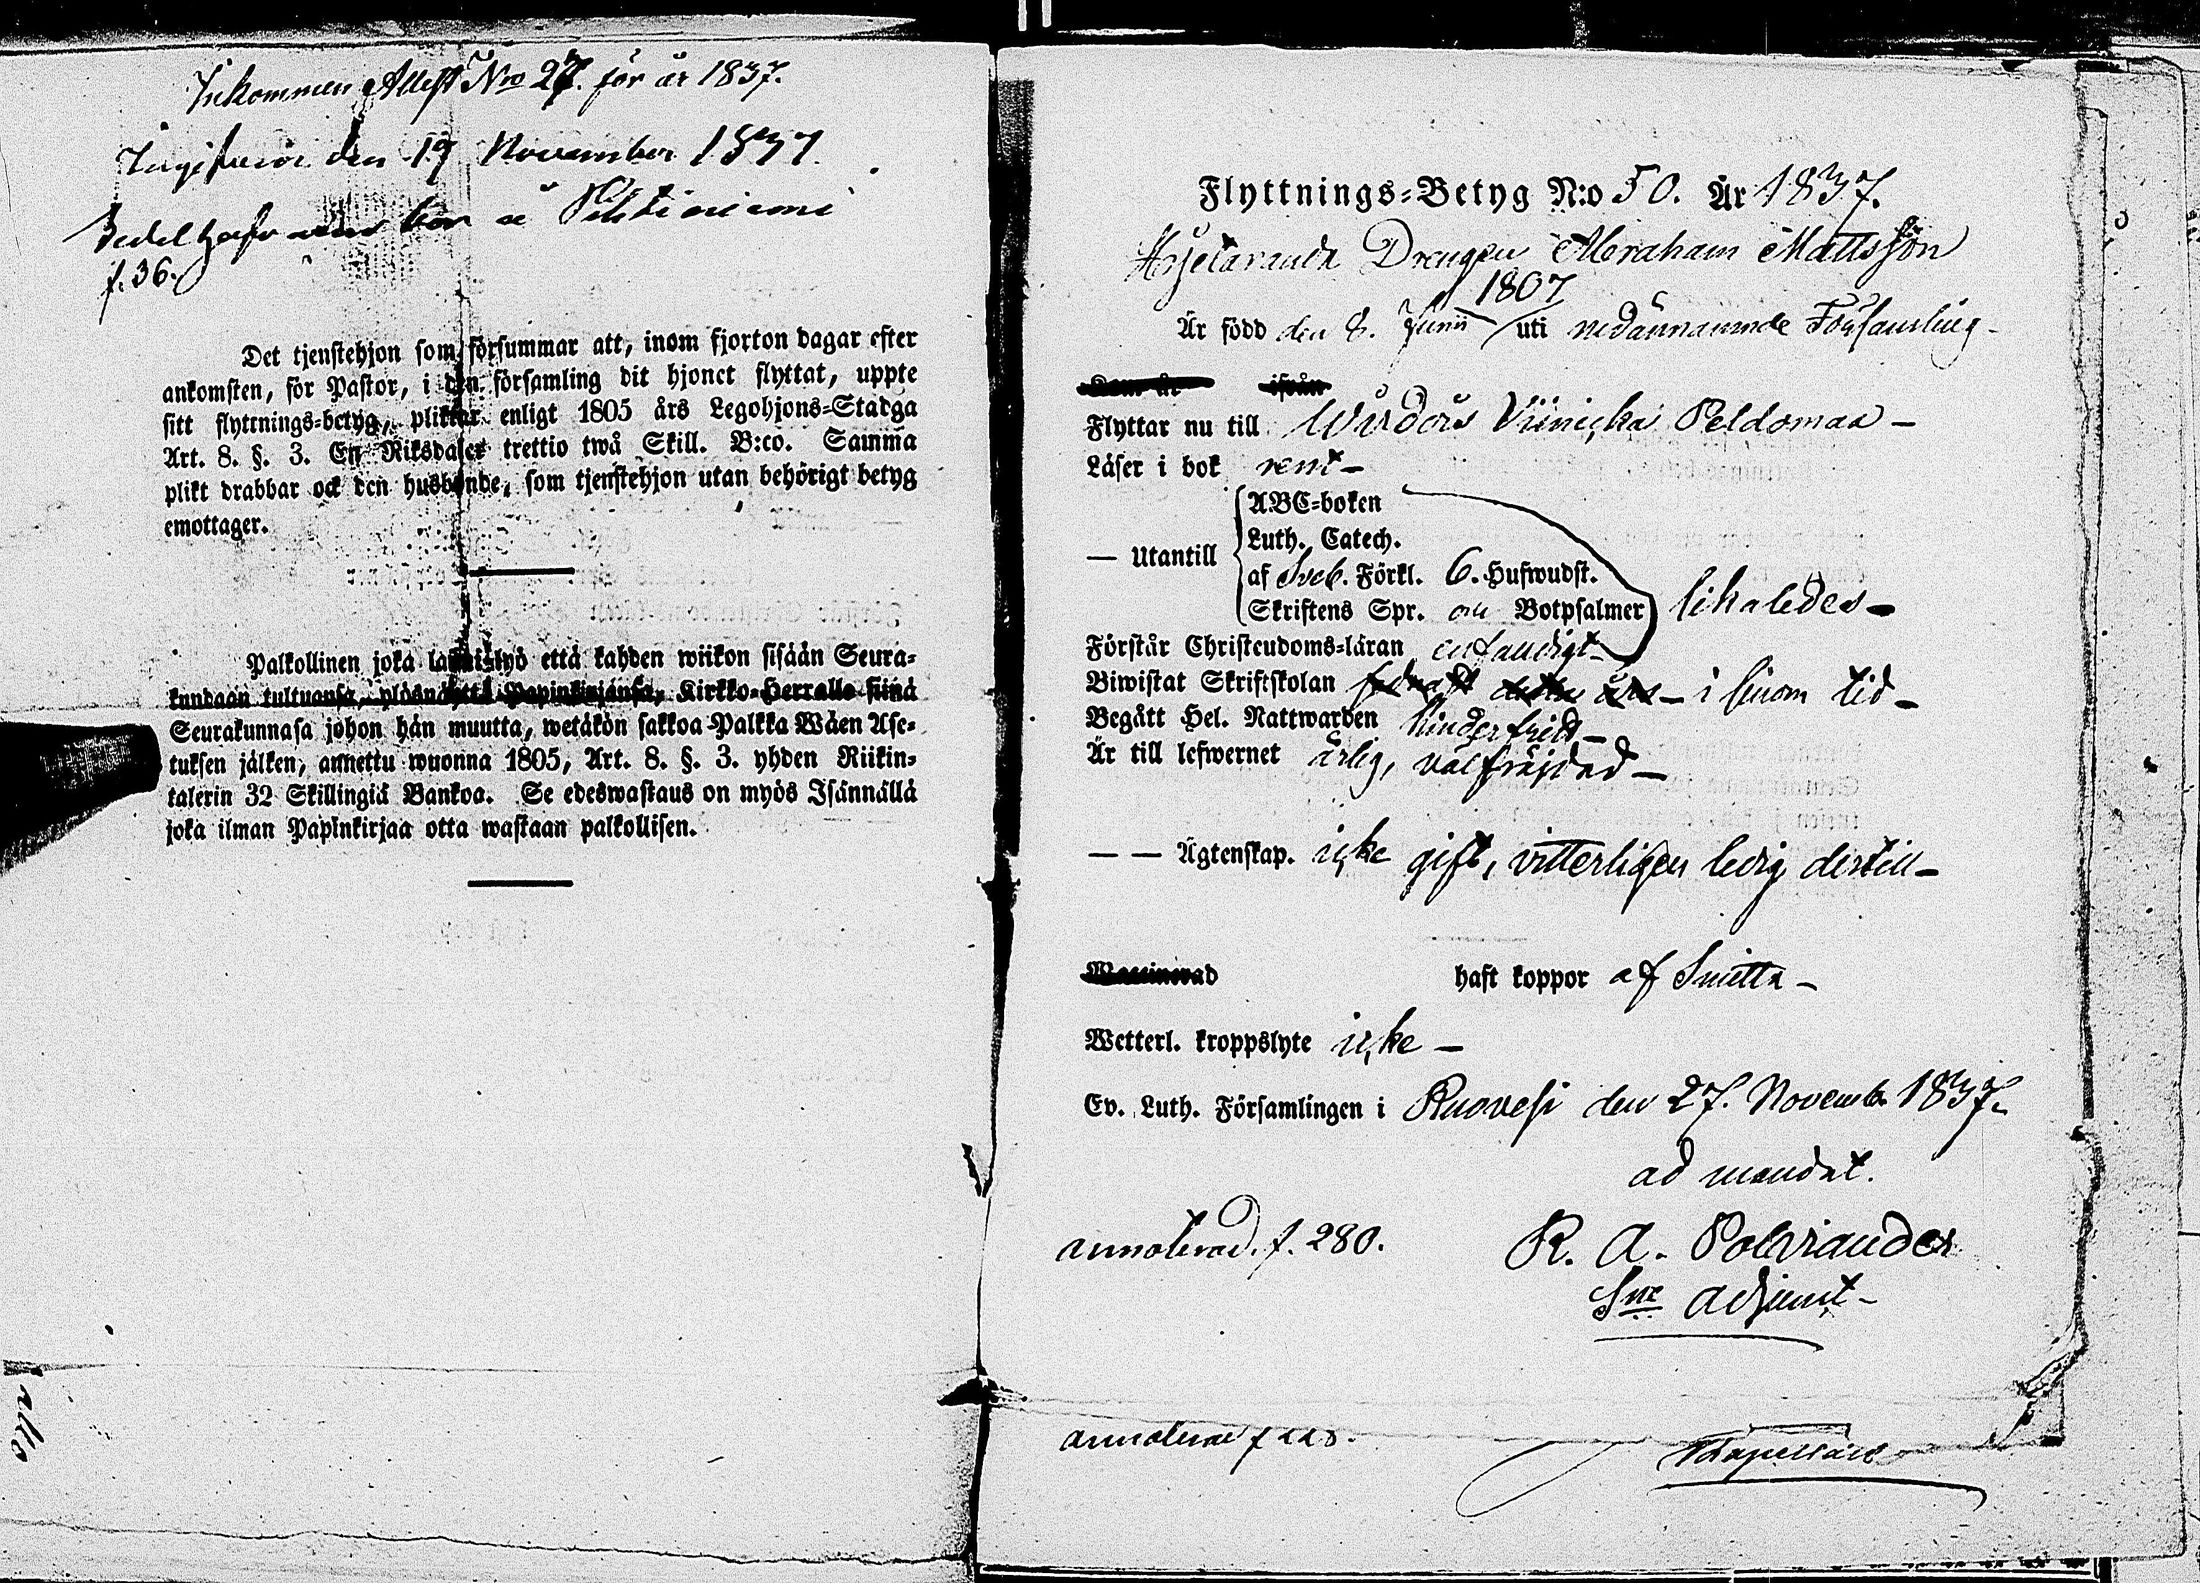 Inkommen Attest Nro 27. för år 1837.
den 19 November 1837.
f. 36.
Det tjenstehjon som försummar att, inom fjorton dagar efter
ankomsten, för Pastor, i den församling dit hjonet flyttat, uppte
sitt flyttnings-betyg, pliktar enligt 1805 års Legohjons-Stadga
Art. 8. §. 3. En Riksdaler trettio twå Skill. B:co. Samma
plikt drabbar ock den husbonde, som tjenstehjon utan behörigt betyg
emottager.
Palkollinen joka laiminlyö että kahden wiikon sisään Seura-
kundaan tultuansa, ylösnäyttä Papinkirjansa, Kirkko-Herralle siinä
Seurakunnasa johon hän muutta, wetäkön sakkoa Palkka Wäen Ase-
tuksen jälken, annettu wuonna 1805, Art. 8. §. 3. yhden Riikin-
talerin 32 Skillingiä Bankoa. Se edeswastaus on myös Isännällä
joka ilman Papinkirjaa otta wastaan palkollisen.
Flyttnings-Betyg N:o 50. År 1837.
Drengen Abraham Mattsson
1807
Är född den 8. Junii uti nedannamnde Församling -
Flyttar nu till Wårdöis Viinicka Peldomaa -
Läser i bok rent -
ABC-boken
Luth. Catech.
— Utantill
af Sveb. Förkl. 6. Hufwudst.
Skriftens Spr. och Botpsalmer likaledes -
Förstår Christendoms-läran enfaldigt -
Biwistat Skriftskolan - i sinom tid -
Begått Hel. Nattwarden hinderfritt -
Är till lefwernet ärlig, välfräjdad -
— — Ägtenskap. icke gift, vitterligen ledig dertill -
Waccinerad haft koppor af Smitta -
Wetterl. kroppslyte icke -
Ev. Luth. Församlingen i Ruovesi den 27. Novemb. 1837.
ad mandat.
annoterad. f. 280.
R. A. Polviander
Sne Adjunct -